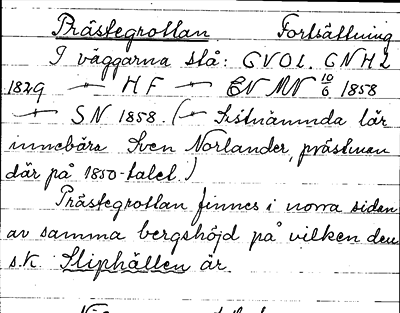 Prästegrottan Fortsättning
I väggarna stå: GVOL. GNHL
1829 — HF — EN MN 10/6 1858
— SN 1858. (— Sistnämnda lär
innebära Sven Norlander, prästman
där på 1850-talet.)
Prästegrottan finnes i norra sidan
av samma bergshöjd på vilken den
s.k. Sliphällen är.